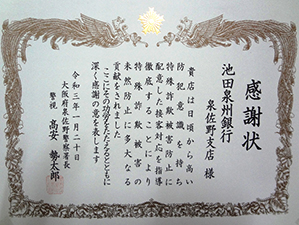 感謝状
池田泉州銀行
泉佐野支店 様
貴店は日頃から高い
防犯意識を持ち
特殊詐欺被害防止に
配意した接客対応を指導
徹底することにより
特殊詐欺被害の
未然防止に多大なる
貢献をされました
ここにその功労をたたえるとともに
深く感謝の意を表します
令和三年一月二十日
大阪府泉佐野警察署長
警視 高安 勢太郎